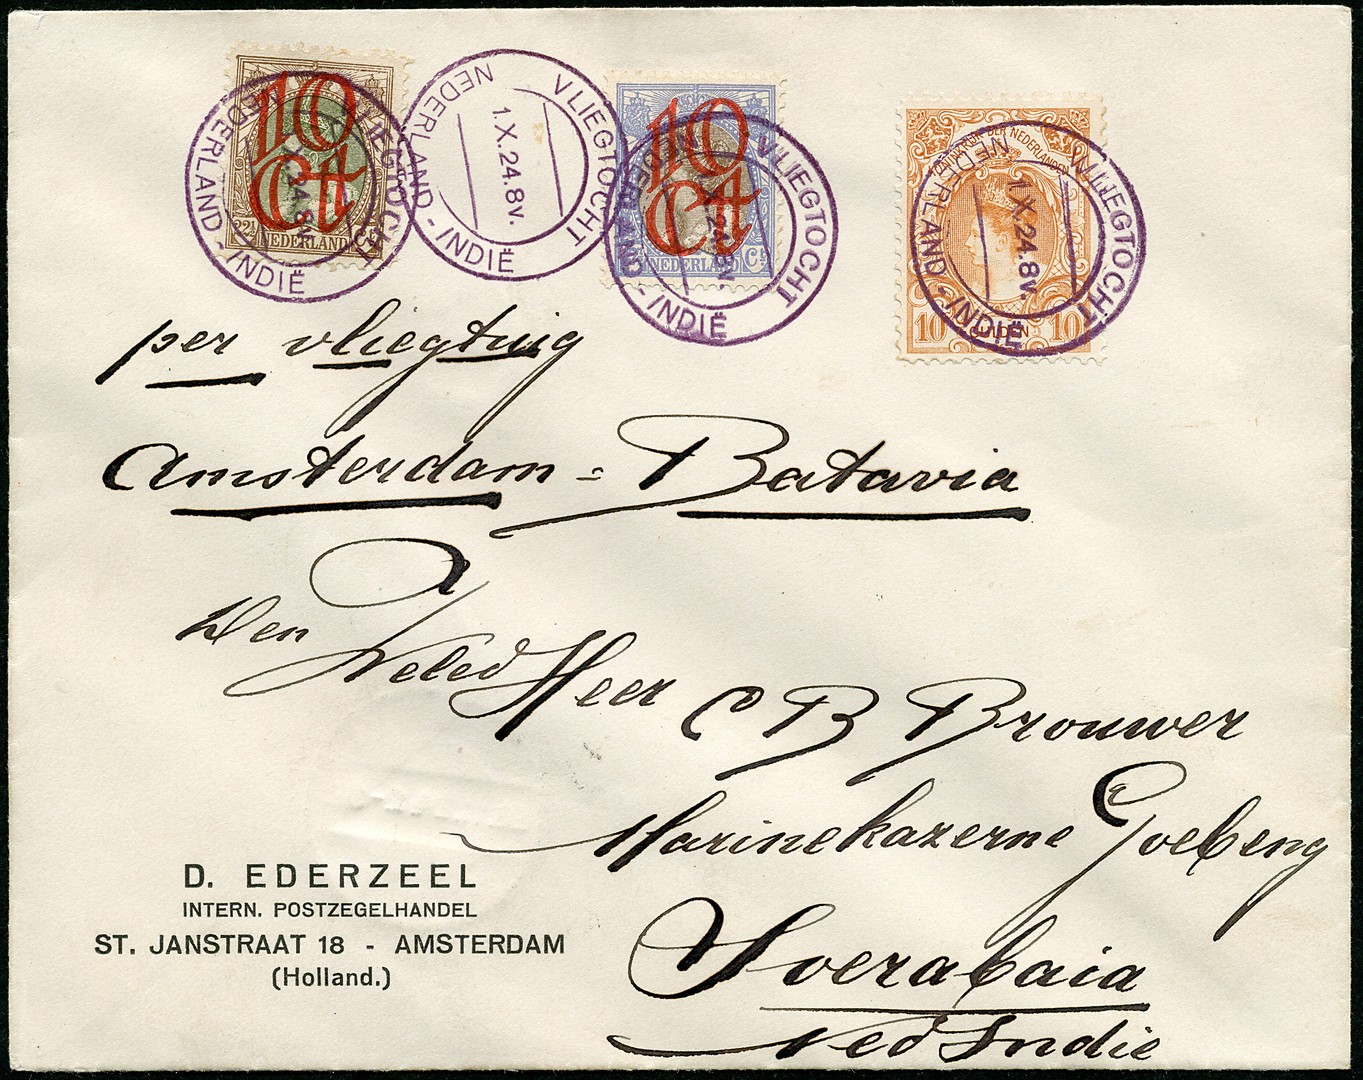 10 Ct
22½ NEDERLAND Ct
VLIEGTOCHT NEDERLAND - INDIË
1.X.24.8V.
VLIEGTOCHT NEDERLAND - INDIË
1.X.24.8V.
10 Ct
NEDERLAND Ct
VLIEGTOCHT NEDERLAND - INDIË
X.24.8V.
KONINKRIJK DER NEDERLANDEN
10 GULDEN 10
VLIEGTOCHT NEDERLAND - INDIË
1.X.24.8V.
per vliegtuig
Amsterdam = Batavia
Den WelEd Heer C B Brouwer
Marinekazerne Goebeng
Soerabaia
Ned Indie
D. EDERZEEL
INTERN. POSTZEGELHANDEL
ST. JANSTRAAT 18 - AMSTERDAM
(Holland.)